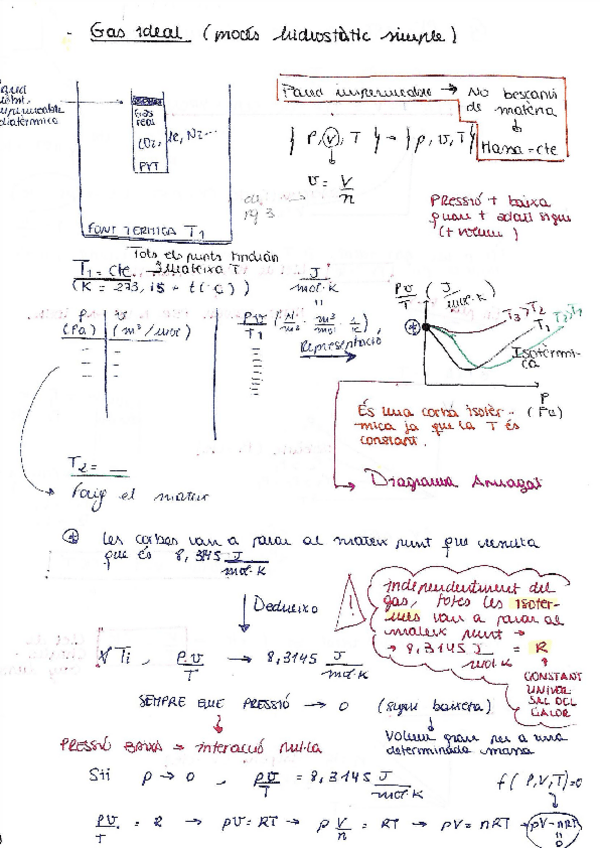 - Gas ideal (procés hidrostàtic simple)
impermeable
diatèrmica
Gas
real
CO2, He, N2...
PVT
FONT TÈRMICA T1
Paret impermeable → No bescanvi
de matèria
↓
Massa = cte
{ P, V, T } → { p, v, T }
v = V/n
PRESSIÓ + baixa
quan + adalt sigui
(+ volum)
Tots els punts tindran
T1 = cte. → mateixa T
(K = 273,15 + t(ºC))
P (Pa)
v (m³/mol)
J/mol·K
=
Pv/T1 (N/m² · m³/mol · 1/K),
Representació
Pv/T (J/mol·K)
T3 > T2
T1
T2 > T1
Isotèrmi-
ca
P (Pa)
És una corba isotèr-
mica ja que la T és
constant.
Diagrama Amagat
T2 = __
Faig el mateix
* Les corbes van a parar al mateix punt que resulta
que és 8,3145 J/mol·K
↓ Dedueixo
!
Independentment del
gas, totes les isoter-
mes van a parar al
mateix punt →
→ 8,3145 J/mol·K = R
↑
CONSTANT
UNIVER
SAL DEL
CALOR
∀ Ti, P·v/T → 8,3145 J/mol·K
SEMPRE QUE PRESSIÓ → 0 (sigui baixeta)
↓
Volum gran per a una
determinada massa
PRESSIÓ BAIXA → interacció nul·la
Si p → 0, pv/T = 8,3145 J/mol·K
f(P,V,T)=0
pv/T = R → pv = RT → p V/n = RT → pV = nRT → pV-nRT = 0